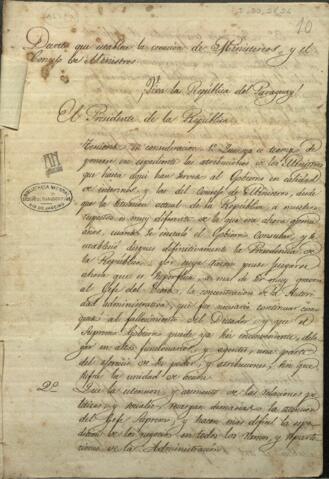 10
Decreto que establece la creacion de Ministerios, y el
Consejo los Ministros
¡Viva la República del Paraguay!
El Presidente de la República
Teniendo en consideracion 1º Que ya es tiempo de
poner en expediente las atribuciones de los Ministros
que hasta aqui han servido al Gobierno en calidad
de interinos, y las del Consejo de Ministros, desde
que la situacion actual de la República, a nuestro
respecto es muy diferente de la que era ahora
años, cuando se instaló el Gobierno Consular, y se
estableció despues definitivamente la Presidencia de
la República: por cuya razon
ahora que es
al Gefe del Estado, la concentracion de la Autori
dad administrativa, que fue necesario continuar
al fallecimiento del Dictador, y que el
Supremo Gobierno puede ya sin inconveniente, dele
gar en altos funcionarios, y agentes, una parte
del ejercicio de su poder, y atribuciones, sin que
la unidad de accion
2º Que la extension, y aumento de las relaciones po
liticas, y sociales, recargan demasiado la atencion
del Gefe Supremo, y hacen mas dificil la espe
dicion de los negocios en todos los ramos, y reparti
ciones de la Administracion
BIBLIOTHECA NACIONAL
RIO DE JANEIRO